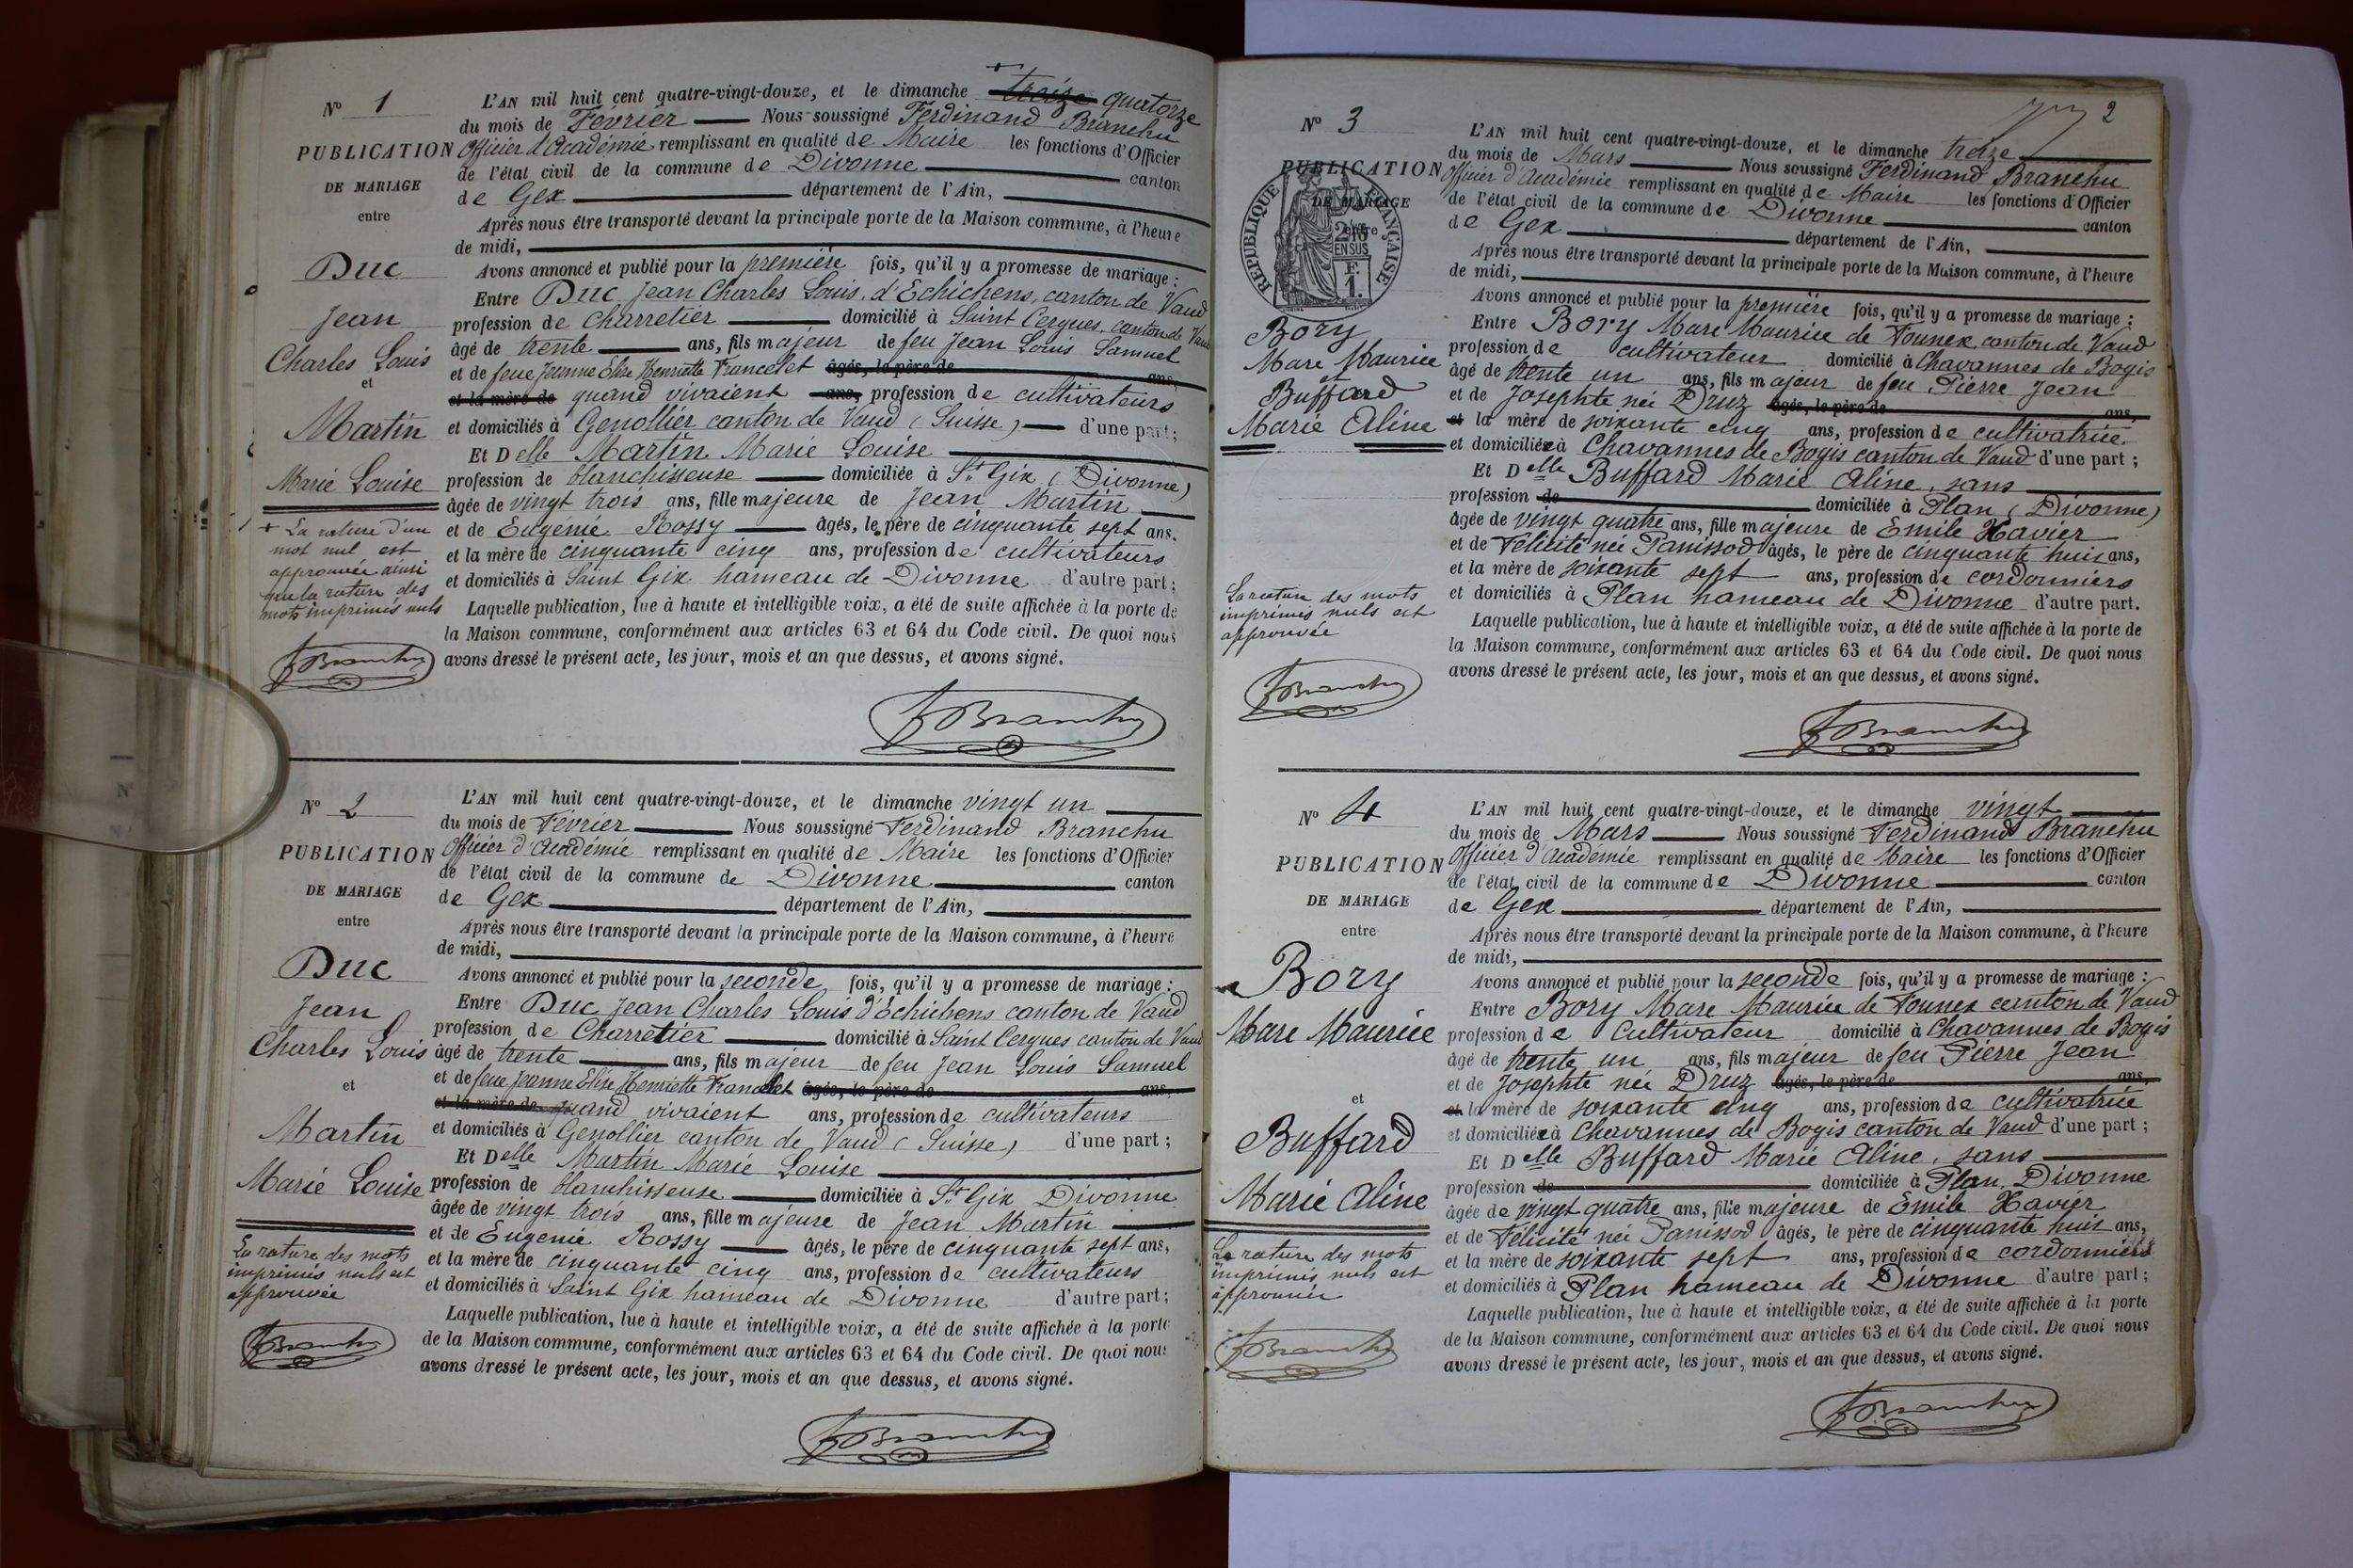 N° 1
PUBLICATION
DE MARIAGE
entre
Duc
Jean
Charles Louis
et
Martin
Marie Louise
+ La rature d'un
mot nul est
approuvée ainsi
que la rature des
mots imprimés nuls
FBranchu
L'AN mil huit cent quatre-vingt-douze, et le dimanche + treize quatorze
du mois de Février Nous soussigné Ferdinand Branchu
Officier d'Académie remplissant en qualité de Maire les fonctions d'Officier
de l'état civil de la commune de Divonne canton
de Gex département de l'Ain,
Après nous être transporté devant la principale porte de la Maison commune, à l'heure
de midi,
Avons annoncé et publié pour la première fois, qu'il y a promesse de mariage :
Entre Duc Jean Charles Louis, d'Echichens, canton de Vaud
profession de Charretier domicilié à Saint Cergues, canton de Vaud
âgé de trente ans, fils majeur de feu Jean Louis Samuel
et de feue Jeanne Élise Henriette Francelet âgés, le père de ans,
et la mère de quand vivaient ans, profession de cultivateurs
et domiciliés à Genollier canton de Vaud (Suisse) d'une part;
Et Delle Martin Marie Louise
profession de blanchisseuse domiciliée à St Gix (Divonne)
âgée de vingt trois ans, fille majeure de Jean Martin
et de Eugénie Rossy âgés, le père de cinquante sept ans,
et la mère de cinquante cinq ans, profession de cultivateurs
et domiciliés à Saint Gix hameau de Divonne d'autre part;
Laquelle publication, lue à haute et intelligible voix, a été de suite affichée à la porte de
la Maison commune, conformément aux articles 63 et 64 du Code civil. De quoi nous
avons dressé le présent acte, les jour, mois et an que dessus, et avons signé.
FBranchu
N° 2
PUBLICATION
DE MARIAGE
entre
Duc
Jean
Charles Louis
et
Martin
Marie Louise
La rature des mots
imprimés nuls est
approuvée
FBranchu
L'AN mil huit cent quatre-vingt-douze, et le dimanche vingt un
du mois de Février Nous soussigné Ferdinand Branchu
Officier d'Académie remplissant en qualité de Maire les fonctions d'Officier
de l'état civil de la commune de Divonne canton
de Gex département de l'Ain,
Après nous être transporté devant la principale porte de la Maison commune, à l'heure
de midi,
Avons annoncé et publié pour la seconde fois, qu'il y a promesse de mariage :
Entre Duc Jean Charles Louis d'Echichens canton de Vaud
profession de Charretier domicilié à Saint Cergues canton de Vaud
âgé de trente ans, fils majeur de feu Jean Louis Samuel
et de feue Jeanne Elise Henriette Francelet âgés, le père de ans,
et la mère de quand vivaient ans, profession de cultivateurs
et domiciliés à Genollier canton de Vaud (Suisse) d'une part;
Et Delle Martin Marie Louise
profession de blanchisseuse domiciliée à St Gix Divonne
âgée de vingt trois ans, fille majeure de Jean Martin
et de Eugenie Rossy âgés, le père de cinquante sept ans,
et la mère de cinquante cinq ans, profession de cultivateurs
et domiciliés à Saint Gix hameau de Divonne d'autre part;
Laquelle publication, lue à haute et intelligible voix, a été de suite affichée à la porte
de la Maison commune, conformément aux articles 63 et 64 du Code civil. De quoi nous
avons dressé le présent acte, les jour, mois et an que dessus, et avons signé.
FBranchu
2
N° 3
PUBLICATION
DE MARIAGE
entre
RÉPUBLIQUE FRANÇAISE
2/10
EN SUS
F.
1.
Bory
Marc Maurice
et
Buffard
Marie Aline
La rature des mots
imprimés nuls est
approuvée
FBranchu
L'AN mil huit cent quatre-vingt-douze, et le dimanche treize
du mois de Mars Nous soussigné Ferdinand Branchu
Officier d'Académie remplissant en qualité de Maire les fonctions d'Officier
de l'état civil de la commune de Divonne canton
de Gex département de l'Ain,
Après nous être transporté devant la principale porte de la Maison commune, à l'heure
de midi,
Avons annoncé et publié pour la première fois, qu'il y a promesse de mariage :
Entre Bory Marc Maurice de Founex canton de Vaud
profession de cultivateur domicilié à Chavannes de Bogis
âgé de trente un ans, fils majeur de feu Pierre Jean
et de Josephte née Druz âgés, le père de ans,
et la mère de soixante cinq ans, profession de cultivatrice
et domiciliée à Chavannes de Bogis canton de Vaud d'une part;
Et Delle Buffard Marie Aline, sans
profession de domiciliée à Plan (Divonne)
âgée de vingt quatre ans, fille majeure de Emile Xavier
et de Félicité née Panissod âgés, le père de cinquante huit ans,
et la mère de soixante sept ans, profession de cordonniers
et domiciliés à Plan hameau de Divonne d'autre part.
Laquelle publication, lue à haute et intelligible voix, a été de suite affichée à la porte de
la Maison commune, conformément aux articles 63 et 64 du Code civil. De quoi nous
avons dressé le présent acte, les jour, mois et an que dessus, et avons signé.
FBranchu
N° 4
PUBLICATION
DE MARIAGE
entre
Bory
Marc Maurice
et
Buffard
Marie Aline
La rature des mots
imprimés nuls est
approuvée
FBranchu
L'AN mil huit cent quatre-vingt-douze, et le dimanche vingt
du mois de Mars Nous soussigné Ferdinand Branchu
Officier d'Académie remplissant en qualité de Maire les fonctions d'Officier
de l'état civil de la commune de Divonne canton
de Gex département de l'Ain,
Après nous être transporté devant la principale porte de la Maison commune, à l'heure
de midi,
Avons annoncé et publié pour la seconde fois, qu'il y a promesse de mariage :
Entre Bory Marc Maurice de Founex canton de Vaud
profession de Cultivateur domicilié à Chavannes de Bogis
âgé de trente un ans, fils majeur de feu Pierre Jean
et de Josephte née Druz âgés, le père de ans,
et la mère de soixante cinq ans, profession de cultivatrice
et domiciliée à Chavannes de Bogis canton de Vaud d'une part;
Et Delle Buffard Marie Aline, sans
profession de domiciliée à Plan Divonne
âgée de vingt quatre ans, fille majeure de Emile Xavier
et de Félicité née Panissod âgés, le père de cinquante huit ans,
et la mère de soixante sept ans, profession de cordonniers
et domiciliés à Plan hameau de Divonne d'autre part;
Laquelle publication, lue à haute et intelligible voix, a été de suite affichée à la porte
de la Maison commune, conformément aux articles 63 et 64 du Code civil. De quoi nous
avons dressé le présent acte, les jour, mois et an que dessus, et avons signé.
FBranchu